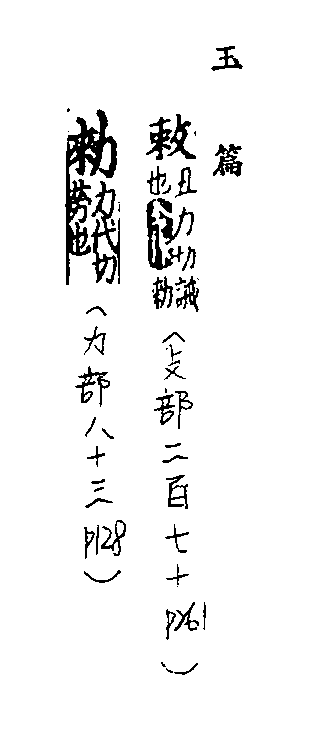 玉篇
敕丑力切誡也勑(攴部二百七十p261)
勑力代切勞也(力部八十三p128)